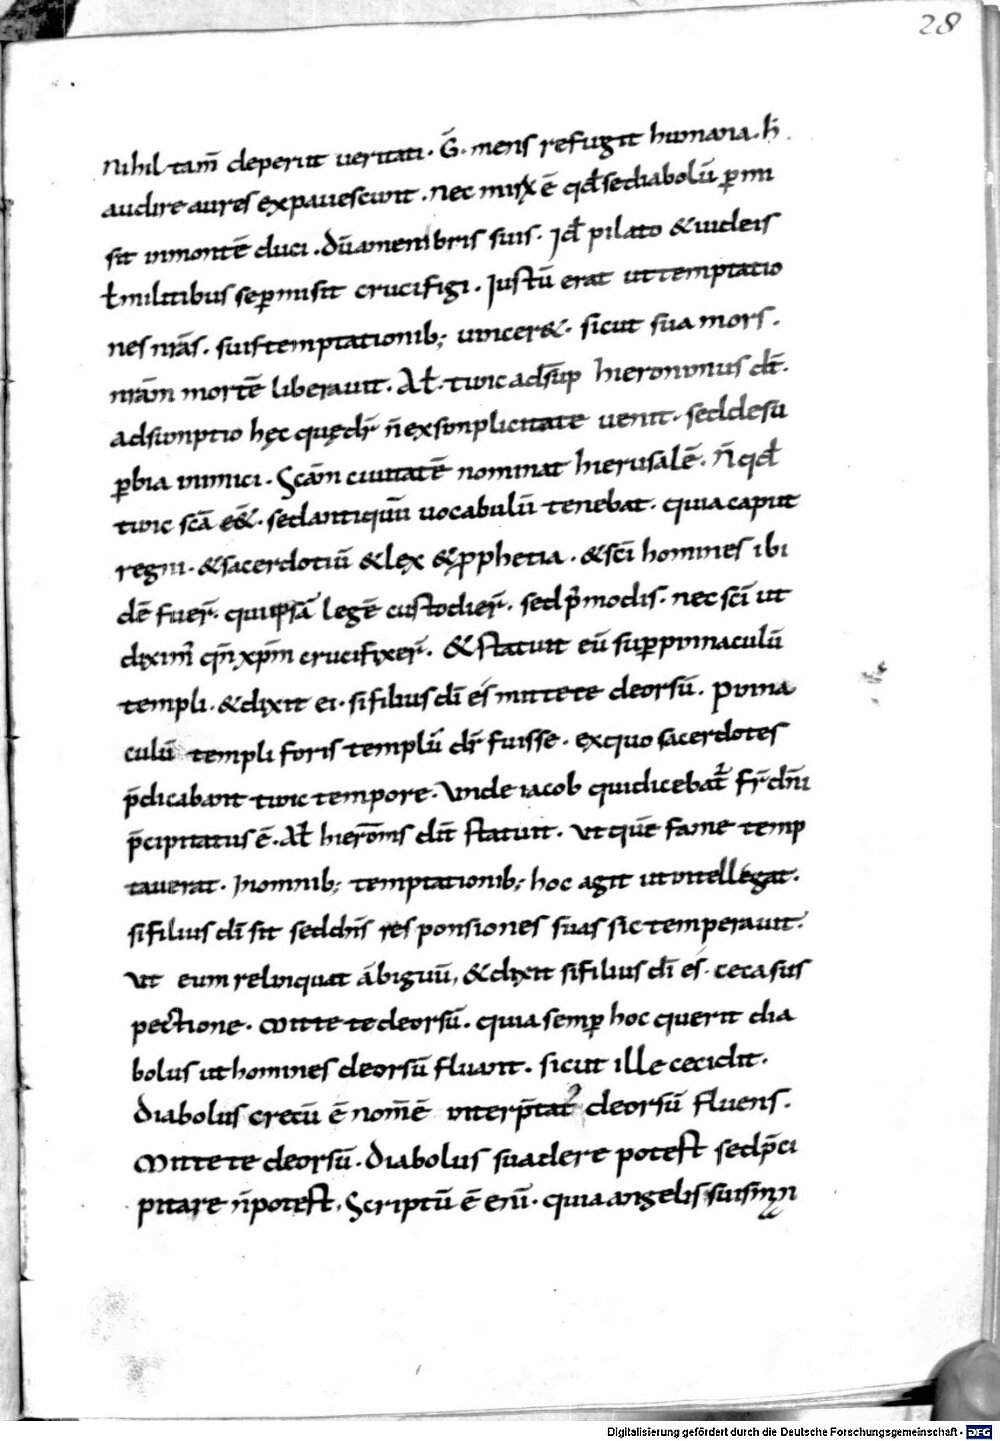 28
Nihil tam̄ deperiit ueritati. Ḡ. mens refugit humana. h̄
audire aures expauescunt. nec mirū ē qđ se diabolū ꝑmi
sit inmontē duci. dū amenbris suis. Jđ pilato & iudeis
ł militibus se ꝑmisit crucifigi. Justū erat ut temptatio
nes nr̄as. suis temptationib; uincer&. sicut sua mors.
nr̄am mortē liberauit. Ał. tunc adsūp hieronimus dī.
adsumptio hęc quę dr̄ n̄ ex simplicitate uenit. sed de su
ꝑbia inimici. Scām ciuitatē nominat hierusalē. n̄ qđ
tunc scā eē&. sed antiquū uocabulū tenebat. quia caput
regni. & sacerdotiū & lex & ꝓphetia. & scī homines ibi
dē fuer̄. qui ipsā legē custodier̄. sed p̄ modis. nec scī ut
diximꝰ qn̄ xp̄m crucifixer̄. & statuit eū supꝑ pinnaculū
templi. & dixit ei. si filius dī es mitte te deorsū. pinna
culū templi foris templū dr̄ fuisse. ex quo sacerdotes
p̄dicabant tunc tempore. Unde iacob qui dicebat̄ fr̄ dn̄i
p̄cipitatus ē. Ał hierōms dīt statuit. ut quē fame temp
tauerat. Jn omnib; temptationib; hoc agit ut intellegat.
si filius dī sit sed dn̄s responsiones suas sic temperauit.
ut eum relinquat ābiguū, & dixit si filius dī es. ceca sus
pectione. Mitte te deorsū. quia semꝑ hoc querit dia
bolus ut homines deorsū fluant. sicut ille cecidit.
Diabolus grecū ē nom̄ē interp̄tat̄ deorsū fluens.
Mitte te deorsū. Diabolus suadere potest sed p̄ci
pitare n̄ potest, Scriptū ē eni̅. quia angelis suis
Digitalisierung gefördert durch die Deutsche Forschungsgemeinschaft - DFG